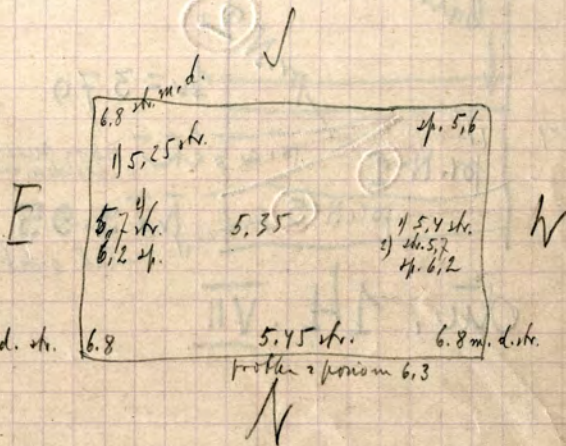 S
6.8 str. m. d.
sp. 5,6
1) 5,25 str.
E
2)
5,7 str.
6,2 sp.
5,35
1) 5,4 str.
2) str. 5,7
sp. 6,2
W
d. str.
6.8
5.45 str.
6.8 m. d. str.
próbka z poziom 6,3
N